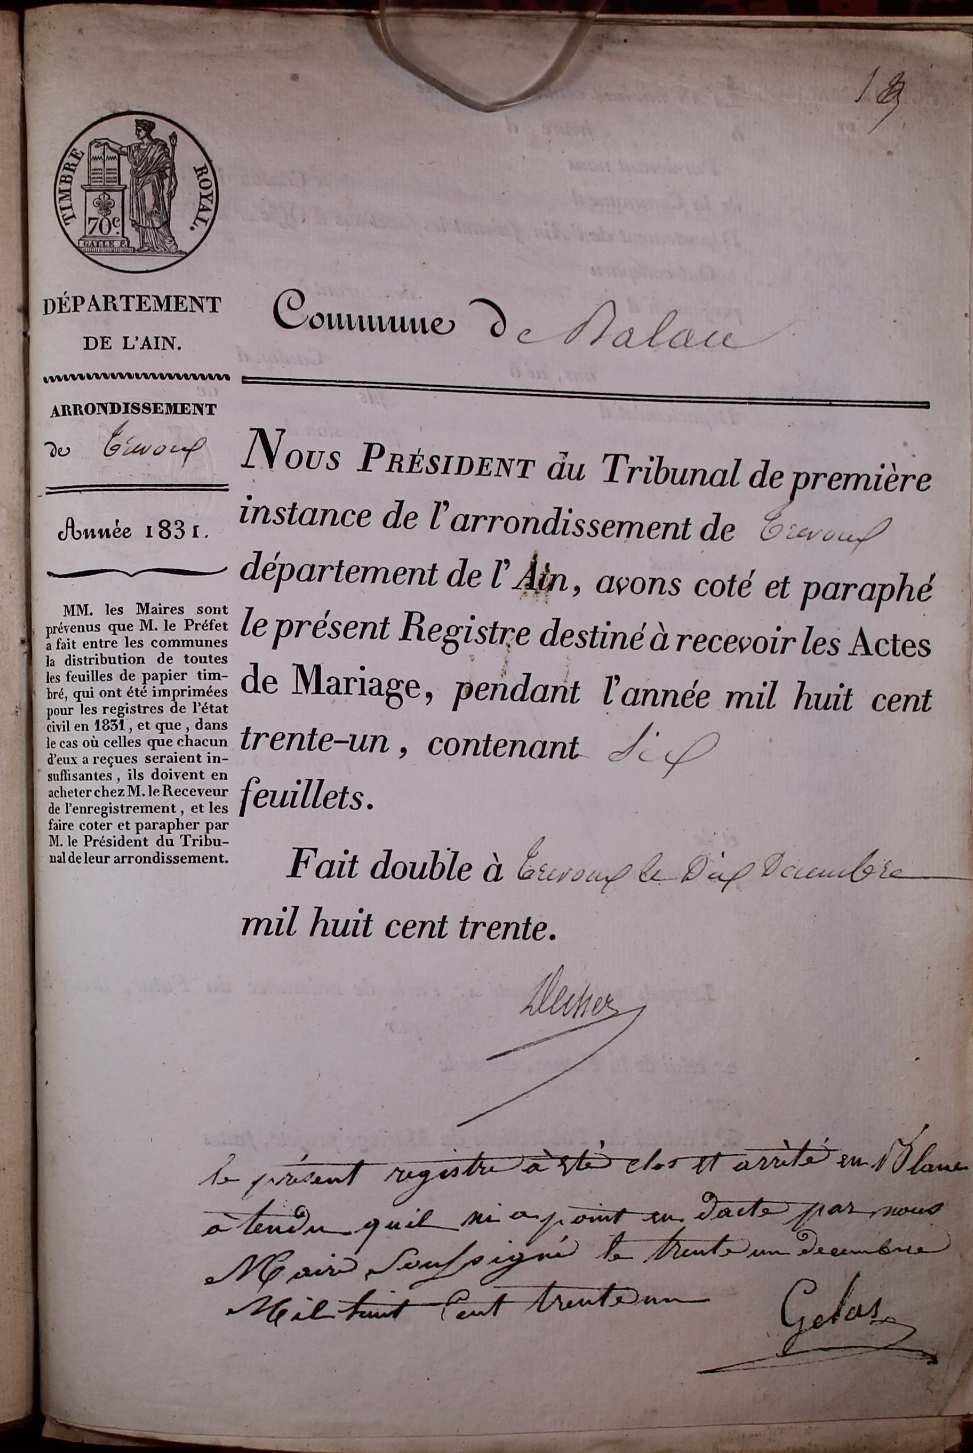 TIMBRE ROYAL.
70c
DÉPARTEMENT
DE L'AIN.
ARRONDISSEMENT
de Trevoux
Année 1831.
MM. les Maires sont
prévenus que M. le Préfet
a fait entre les communes
la distribution de toutes
les feuilles de papier tim-
bré, qui ont été imprimées
pour les registres de l'état
civil en 1831, et que, dans
le cas où celles que chacun
d'eux a reçues seraient in-
suffisantes, ils doivent en
acheter chez M. le Receveur
de l'enregistrement, et les
faire coter et parapher par
M. le Président du Tribu-
nal de leur arrondissement.
Commune de Balan
NOUS PRÉSIDENT du Tribunal de première
instance de l'arrondissement de Trevoux
département de l'Ain, avons coté et paraphé
le présent Registre destiné à recevoir les Actes
de Mariage, pendant l'année mil huit cent
trente-un, contenant Six
feuillets.
Fait double à Trevoux le Dix Decembre
mil huit cent trente.
le présent registre à êté clos et arrèté en Blanc
à tendu quil ni a point eu dacte par nous
Maire Soussigné le trente un decembre
Mil huit Cent trente un
Gelas